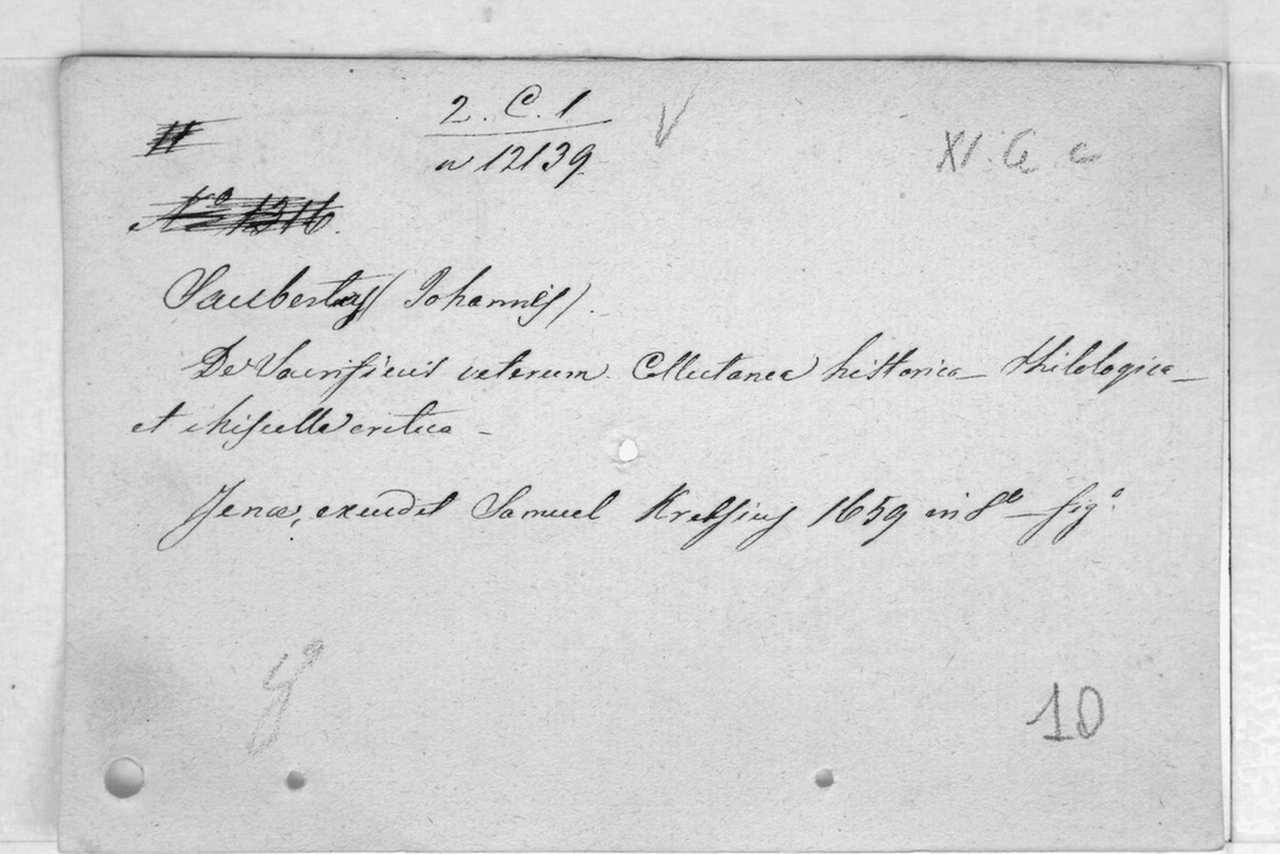 2. C. 1
n 12139
V
XI. G c
II
Nº 1316.
Saubertus (Johannes).
De Sacrificiis veterum Collectanea historico-Philologica-
et Miscella critica-
Jenæ, excudit Samuel Krebsius 1659 in 8º- figº
10